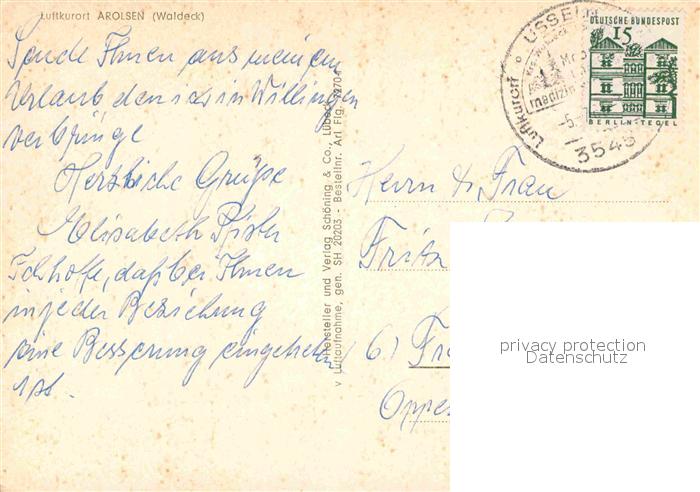 Luftkurort AROLSEN (Waldeck)
Sende Ihnen aus meinem
Urlaub den ich in Willingen
verbringe
Herzliche Grüße
Elisabeth
Ich hoffe, daß bei Ihnen
in jeder Beziehung
eine Besserung eingetreten
ist.
Hersteller und Verlag Schöning & Co., Lübeck
v Luftaufnahme, gen. SH 20203 - Bestellnr. Arl Flg.
Luftkurort USSELN
3543
DEUTSCHE BUNDESPOST
15
BERLIN-TEGEL
Herrn u. Frau
Fritz
6)
privacy protection
Datenschutz